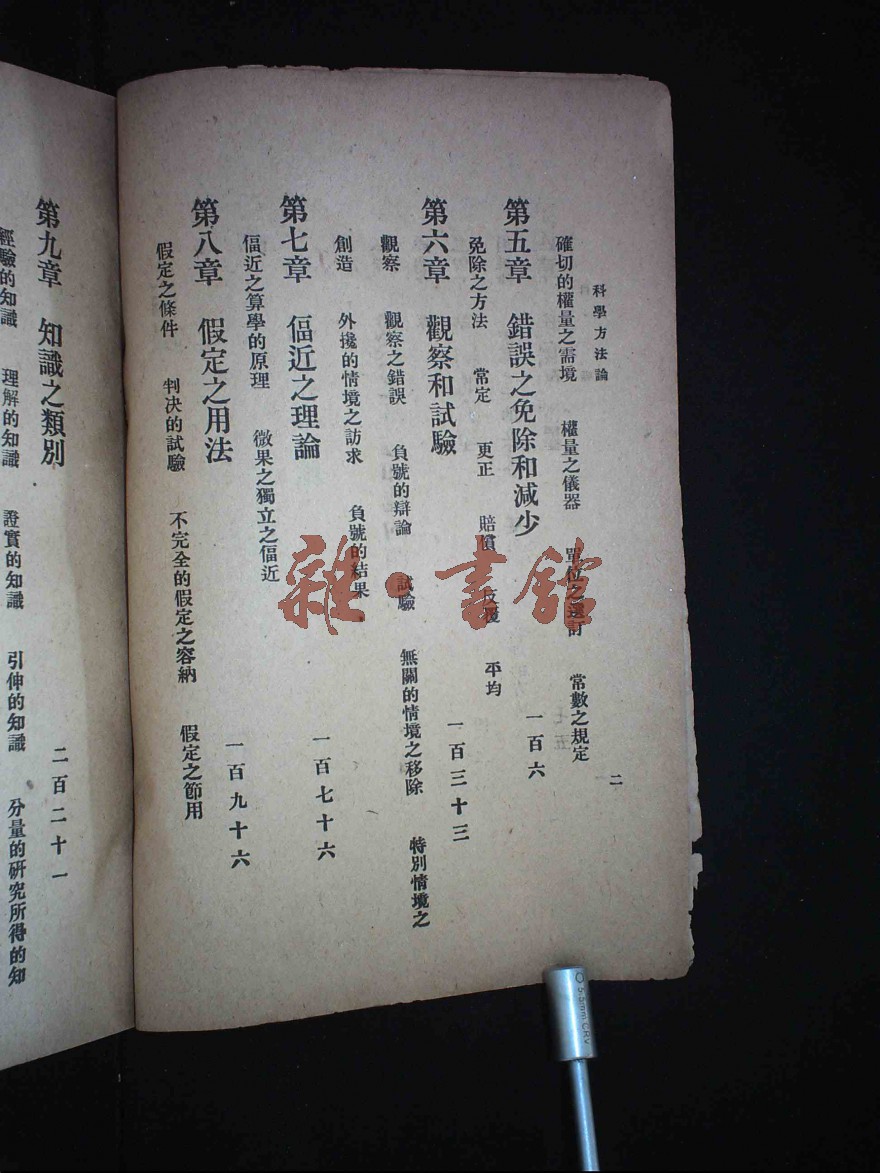 科學方法論
二
確切的權量之需境 權量之儀器 單位之選訂 常數之規定
第五章 錯誤之免除和減少 一百六
免除之方法 常定 更正 賠償 反覆 平均
第六章 觀察和試驗 一百三十三
觀察 觀察之錯誤 負號的辯論 試驗 無關的情境之移除 特別情境之
創造 外攙的情境之訪求 負號的結果
第七章 偪近之理論 一百七十六
偪近之算學的原理 微果之獨立之偪近
第八章 假定之用法 一百九十六
假定之條件 判决的試驗 不完全的假定之容納 假定之節用
第九章 知識之類別 二百二十一
經驗的知識 理解的知識 證實的知識 引伸的知識 分量的研究所得的知
雜·書館
5.5mm CRV